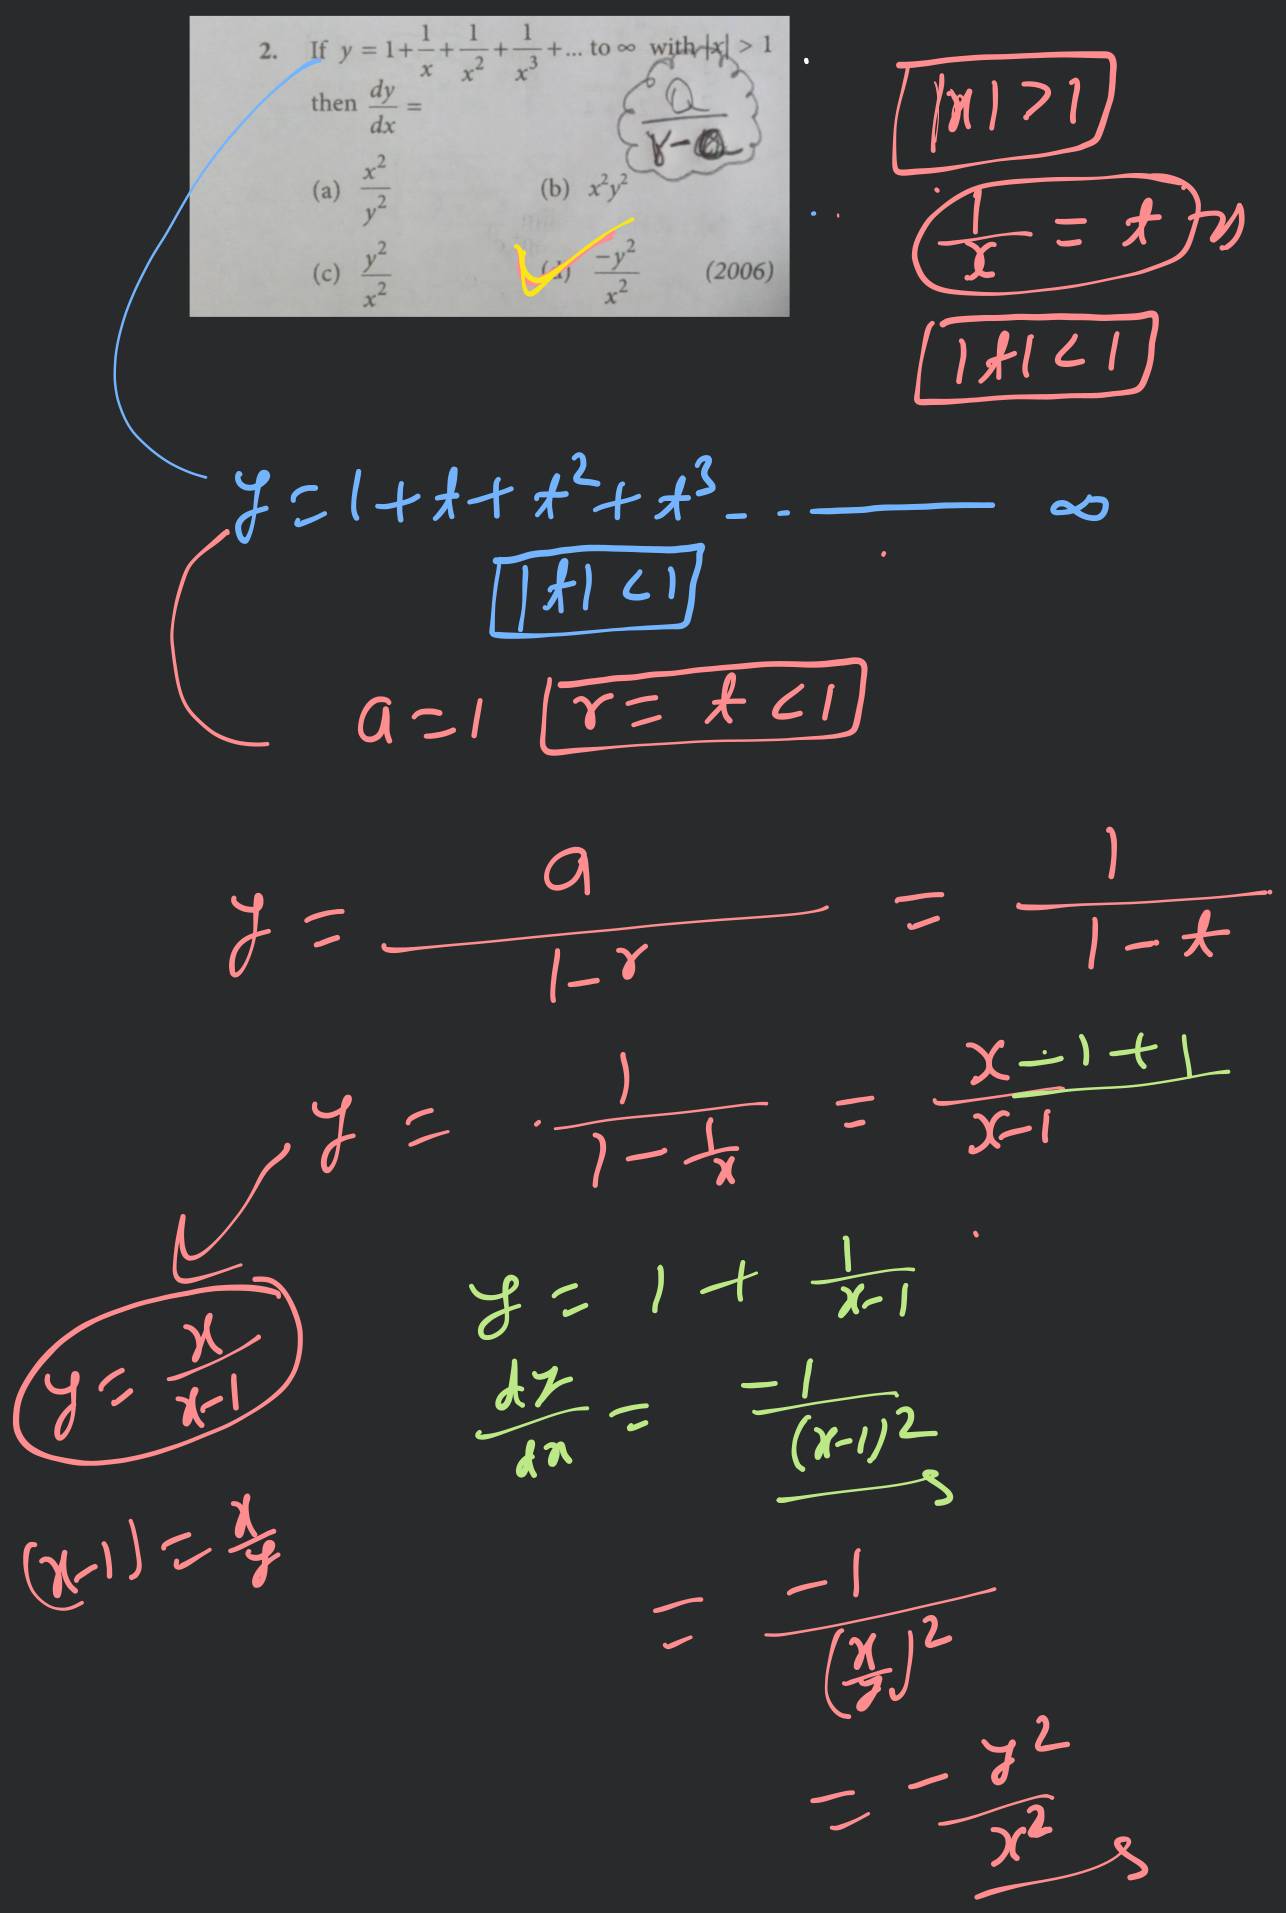 2. If y = 1 + 1/x + 1/x² + 1/x³ + ... to ∞ with |x| > 1
then dy/dx =
(a) x²/y² (b) x²y²
(c) y²/x² (d) -y²/x² (2006)
|x| > 1
1/x = t
|t| < 1
y = 1 + t + t² + t³ - - ——— ∞
|t| < 1
a = 1 r = t < 1
y = a/(1-r) = 1/(1-t)
y = 1/(1 - 1/x) = (x - 1 + 1)/(x-1)
y = 1 + 1/(x-1)
y = x/(x-1)
dy/dx = -1/(x-1)²
(x-1) = x/y
= -1/(x/y)²
= - y²/x²